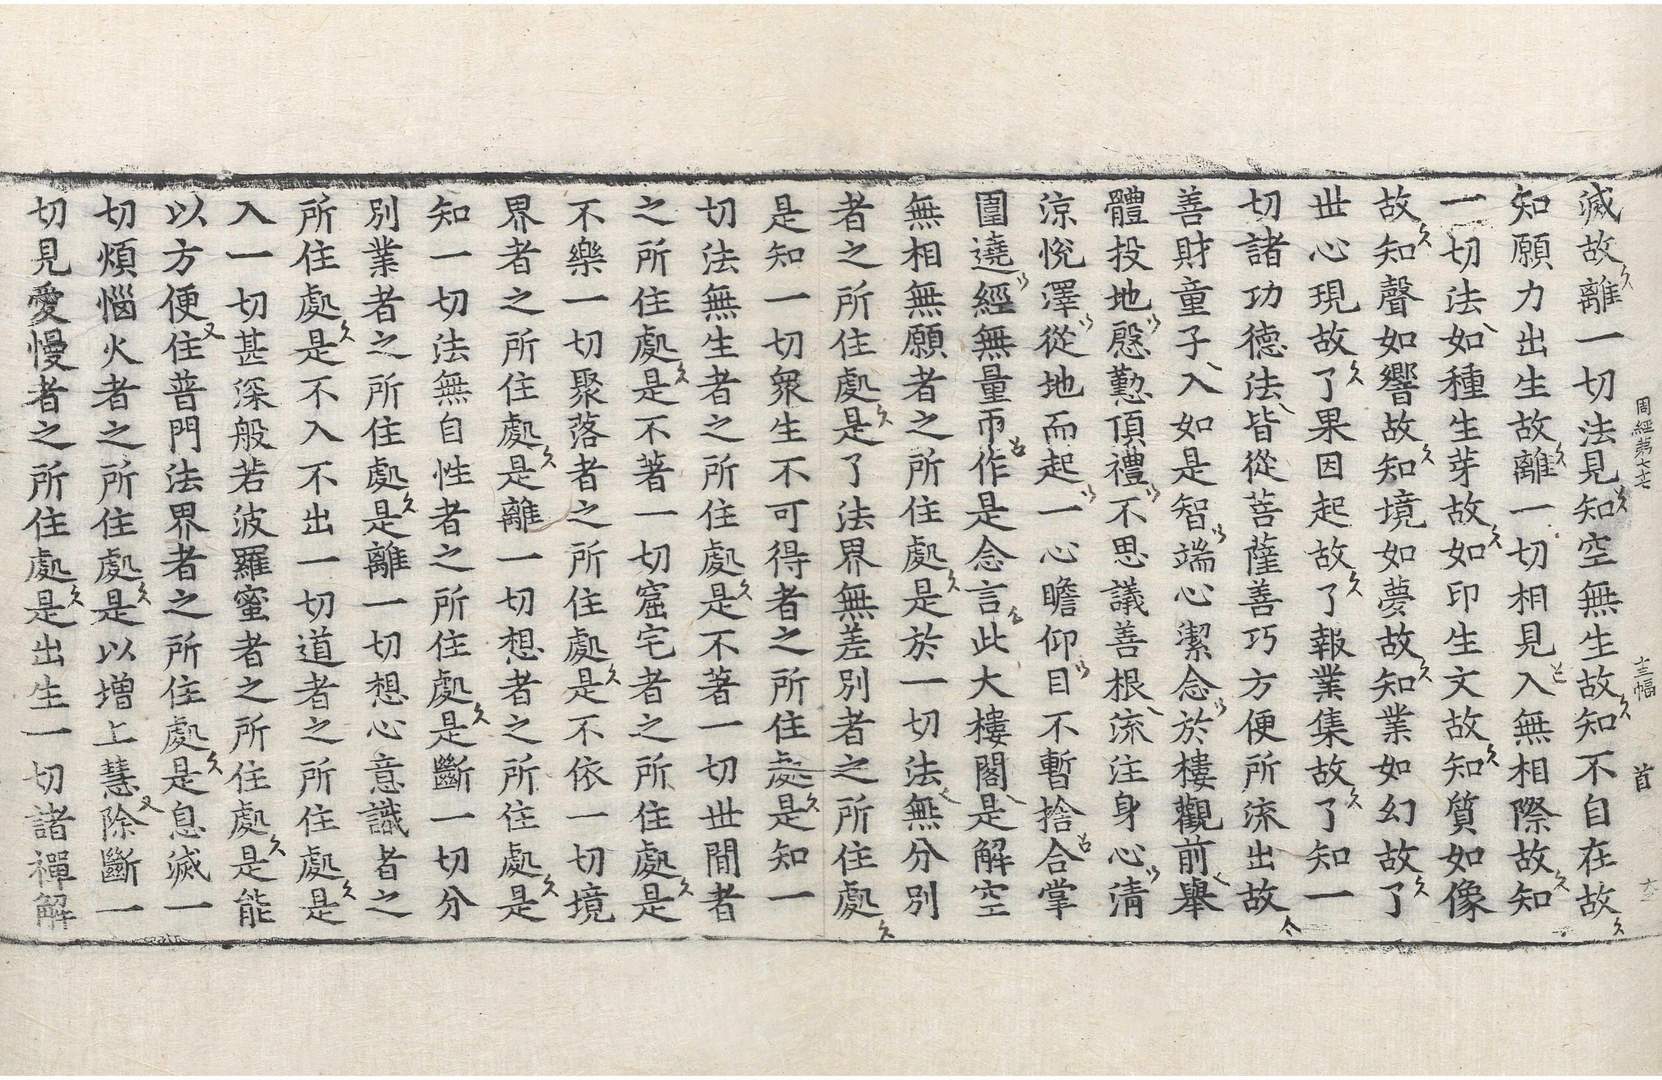 周經第七十七　幅　首
滅故離一切法見知空無生故知不自在故
知願力出生故離一切相見入無相際故知
一切法如種生芽故如印生文故知質如像
故知聲如響故知境如夢故知業如幻故了
世心現故了果因起故了報業集故了知一
切諸功德法皆從菩薩善巧方便所流出故
善財童子入如是智端心潔念於樓觀前舉
體投地慇懃頂禮不思議善根流注身心清
涼悅澤從地而起一心瞻仰目不暫捨合掌
圍遶經無量帀作是念言此大樓閣是解空
無相無願者之所住處是於一切法無分別
者之所住處是了法界無差別者之所住處
是知一切衆生不可得者之所住處是知一
切法無生者之所住處是不著一切世間者
之所住處是不著一切窟宅者之所住處是
不樂一切聚落者之所住處是不依一切境
界者之所住處是離一切想者之所住處是
知一切法無自性者之所住處是斷一切分
別業者之所住處是離一切想心意識者之
所住處是不入不出一切道者之所住處是
入一切甚深般若波羅蜜者之所住處是能
以方便住普門法界者之所住處是息滅一
切煩惱火者之所住處是以增上慧除斷一
切見愛慢者之所住處是出生一切諸禪解